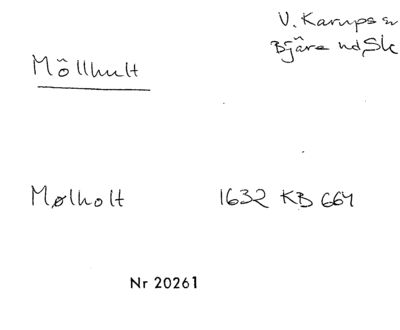 Möllhult
V. Karups sn
Bjäre hd Sk
Mølholt 1632 KB 664
Nr 20261